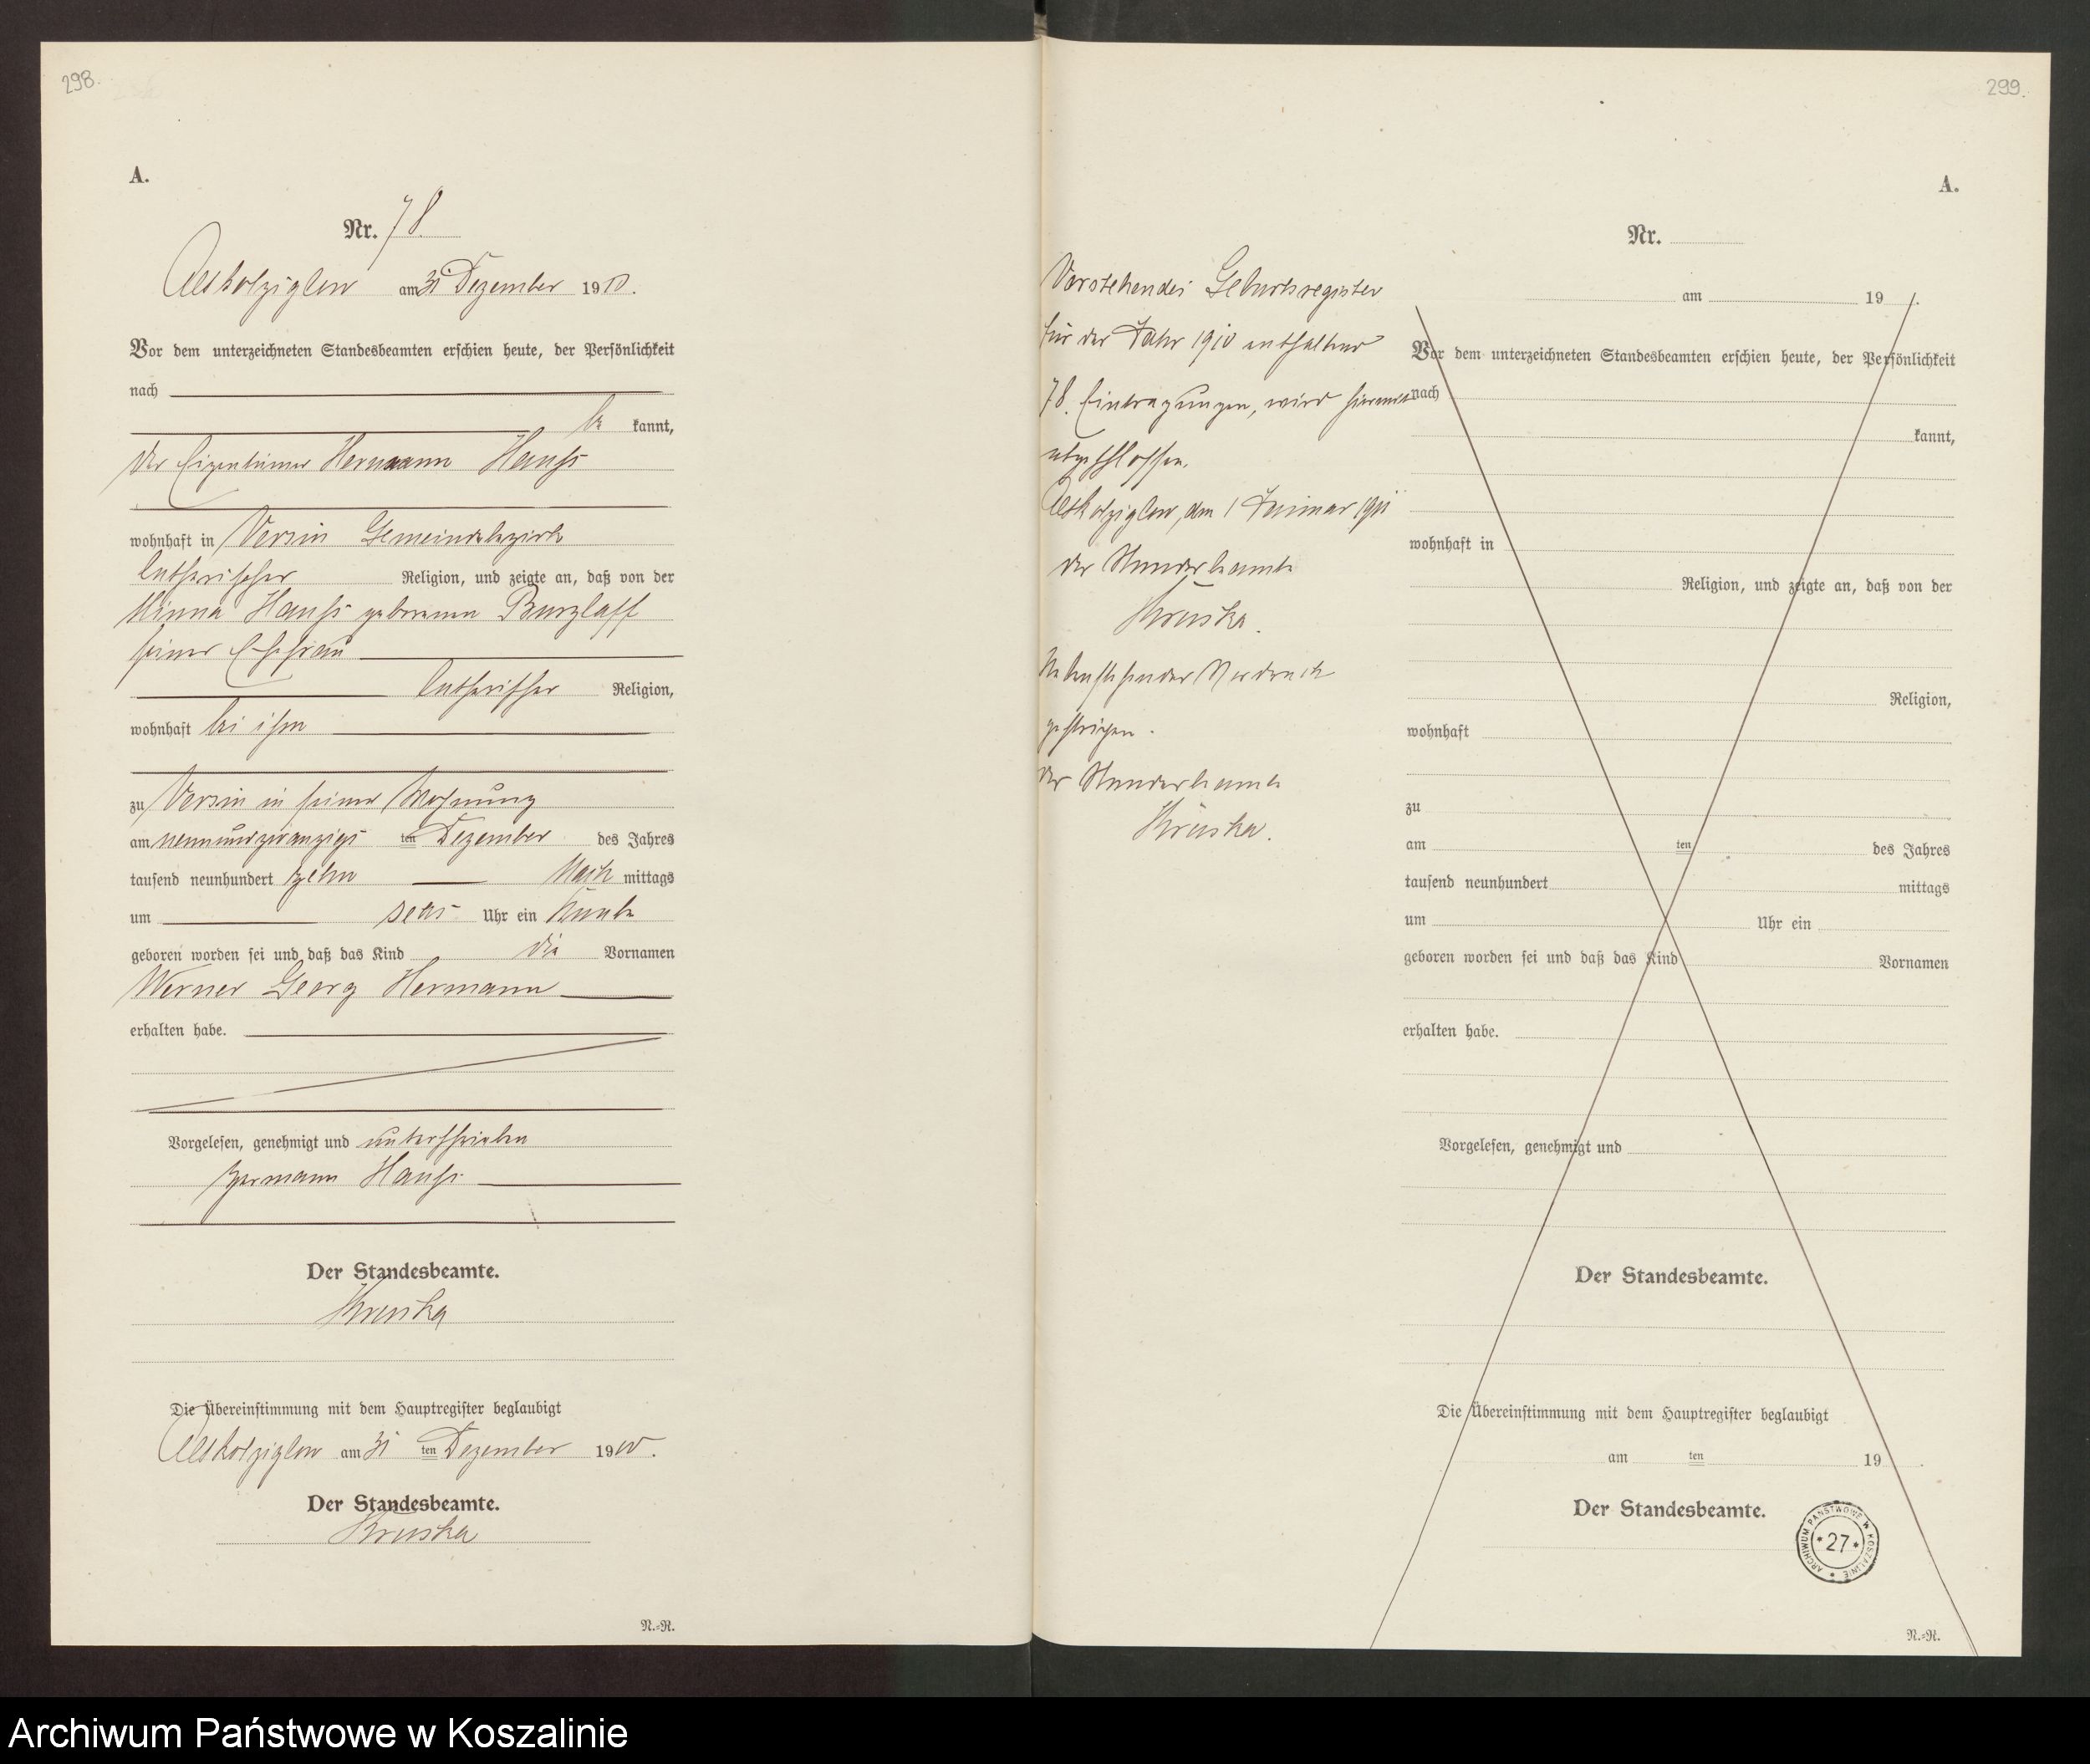 298.
A.
Nr. 78.
Altkolziglow am 31 Dezember 1910.
Vor dem unterzeichneten Standesbeamten erschien heute, der Persönlichkeit
nach
be kannt,
der Eigentümer Hermann
wohnhaft in Versin Gemeindebezirk
lutherischer Religion, und zeigte an, daß von der
Minna geborenen Burzlaff
seiner Ehefrau
lutherischer Religion,
wohnhaft bei ihm
zu Versin in seiner Wohnung
am neunundzwanzigs ten Dezember des Jahres
tausend neunhundert zehn Nach mittags
um sechs Uhr ein Knabe
geboren worden sei und daß das Kind die Vornamen
Werner Georg Hermann
erhalten habe.
Vorgelesen, genehmigt und unterschrieben
Hermann
Der Standesbeamte.
Kruska
Die Übereinstimmung mit dem Hauptregister beglaubigt
Altkolziglow am 31 ten Dezember 1910.
Der Standesbeamte.
Kruska
N.-R.
299.
Vorstehendes Geburtsregister
für das Jahr 1910 enthaltend
78. Eintragungen, wird hiermit
abgeschlossen.
Altkolziglow, den 1 Januar 1911
der Standesbeamte
Kruska.
Nebenstehender Vordruck
gestrichen.
der Standesbeamte
Kruska.
A.
Nr.
am 19 .
Vor dem unterzeichneten Standesbeamten erschien heute, der Persönlichkeit
nach
kannt,
wohnhaft in
Religion, und zeigte an, daß von der
Religion,
wohnhaft
zu
am ten des Jahres
tausend neunhundert mittags
um Uhr ein
geboren worden sei und daß das Kind Vornamen
erhalten habe.
Vorgelesen, genehmigt und
Der Standesbeamte.
Die Übereinstimmung mit dem Hauptregister beglaubigt
am ten 19 .
Der Standesbeamte.
ARCHIWUM PAŃSTWOWE W KOSZALINIE
*27*
N.-R.
Archiwum Państwowe w Koszalinie